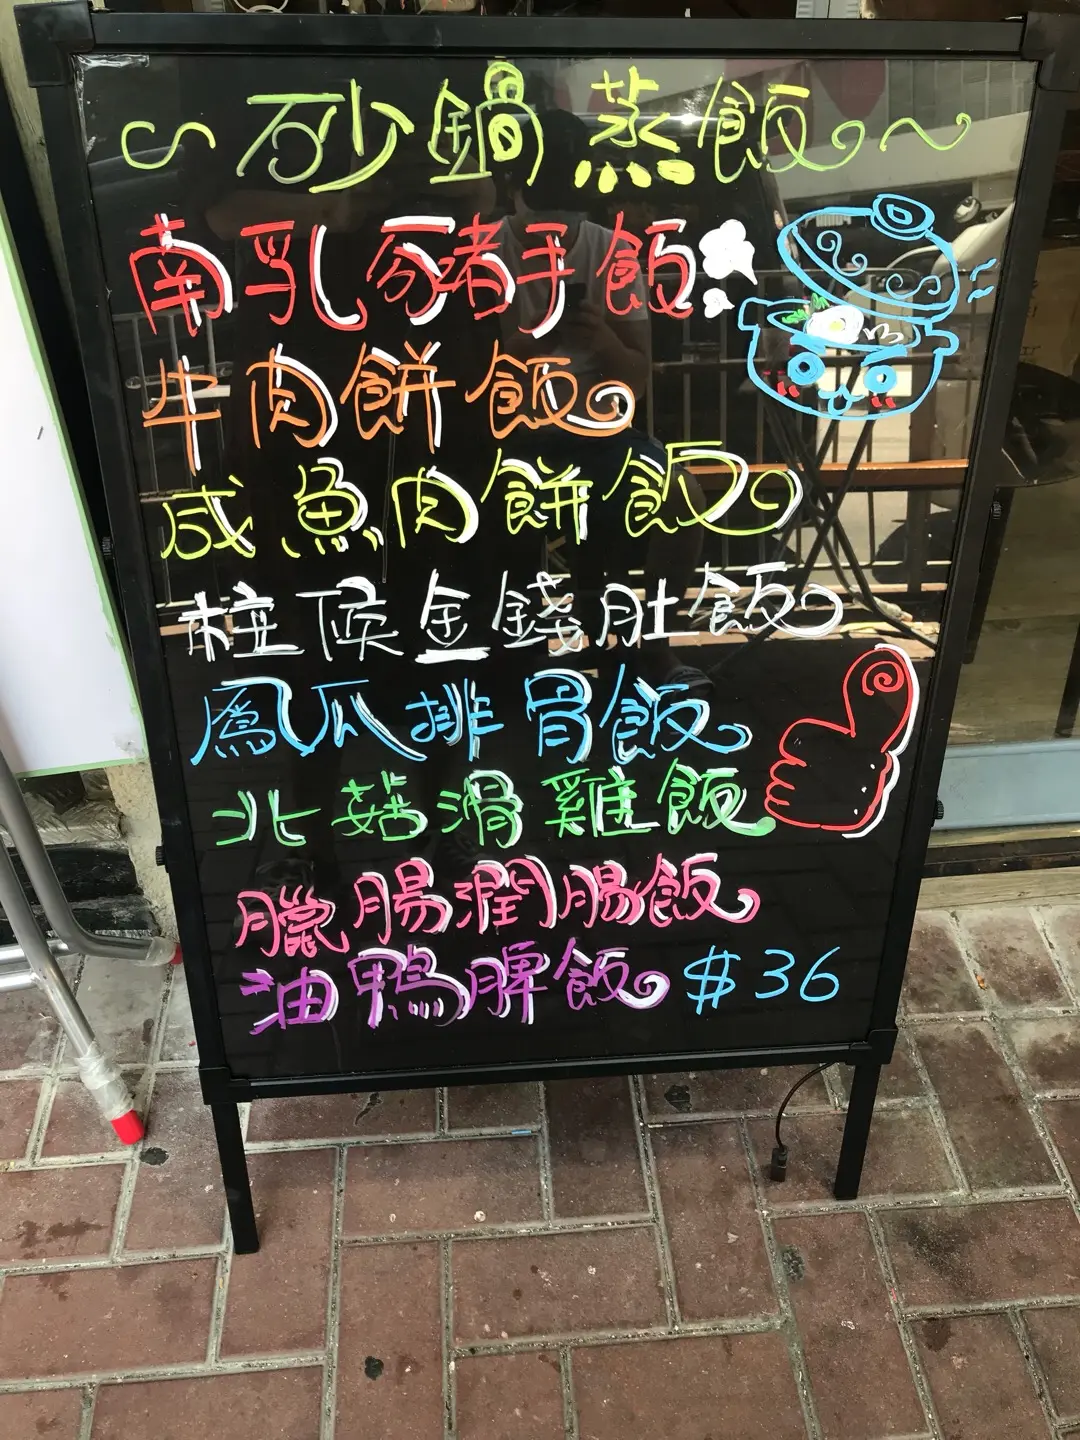 ~砂鍋蒸飯~
南乳豬手飯
牛肉餅飯
咸魚肉餅飯
柱侯金錢肚飯
鳳瓜排骨飯
北菇滑雞飯
臘腸潤腸飯
油鴨脾飯 $36